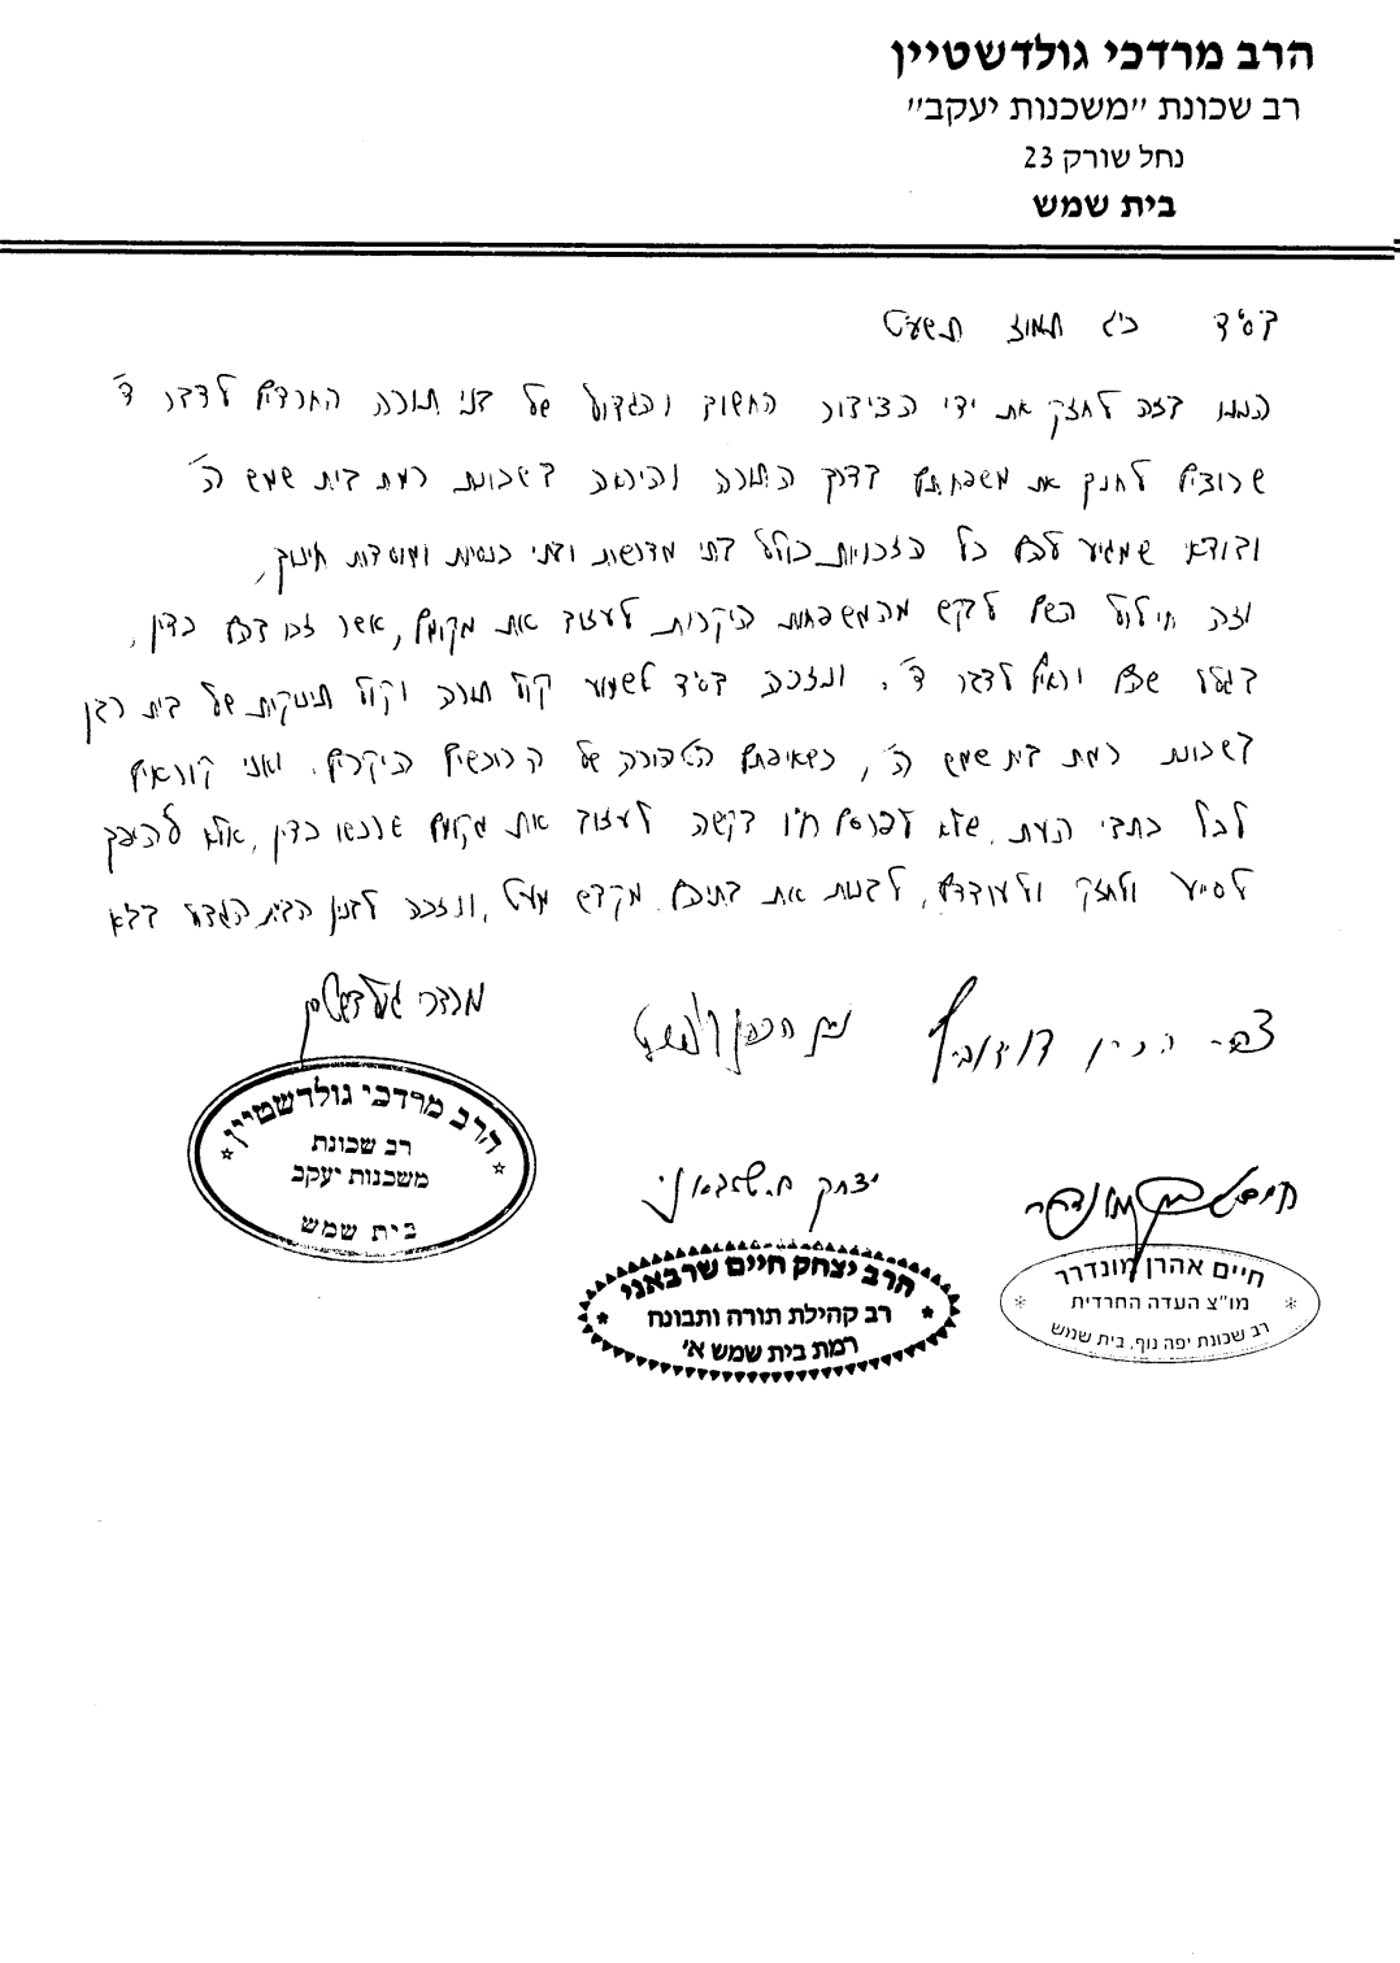 הרב מרדכי גולדשטיין
רב שכונת "משכנות יעקב"
נחל שורק 23
בית שמש
בס"ד כ"ג תמוז תשע"ט
הננו בזה לחזק את ידי הציבור החשוב והגדול של בני תורה החרדים לדבר ד'
שרוצים לחנך את משפחתם בדרך התורה והיראה בשכונת רמת בית שמש ה'
ובודאי שמגיע להם כל הזכויות כולל בתי מדרשות ובתי כנסיות ומוסדות חינוך,
וזה חילול השם לבקש מהמשפחות היקרות לעזוב את מקומם, אשר זכו בהם כדין,
בגלל שהם יראים לדבר ד'. ונזכה בס"ד לשמוע קול תורה וקול תינוקות של בית רבן
בשכונת רמת בית שמש ה', כשאיפתם הטהורה של הרוכשים היקרים. ואנו קוראים
לכל כתבי העת, שלא לפרסם ח"ו בקשה לעזוב את מקומם שרכשו כדין, אלא להיפך
לסייע ולחזק ולעודדם, לבנות את בתיהם מקדש מעט, ונזכה לבנין הבית הגדול בב"א
מרדכי גולדשטיין
נתן הכהן
צבי דוידוביץ
הרב מרדכי גולדשטיין
רב שכונת
משכנות יעקב
בית שמש
יצחק ח. שרבאני
חיים אהרן מונדרר
הרב יצחק חיים שרבאני
רב קהילת תורה ותבונה
רמת בית שמש א'
חיים אהרן מונדרר
מו"צ העדה החרדית
רב שכונת יפה נוף, בית שמש